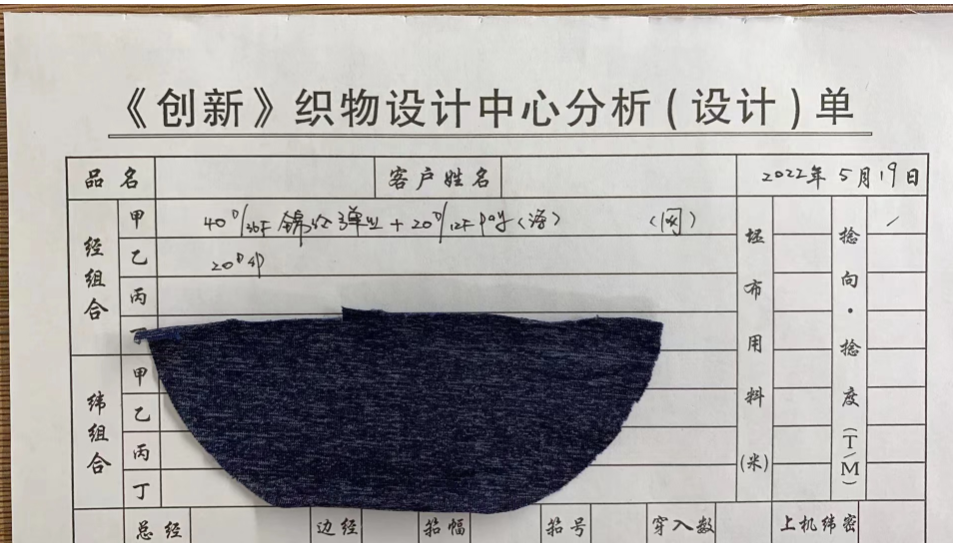 《创新》织物设计中心分析(设计)单
品名 客户姓名 2022年5月19日
经组合 甲 40D/36F 锦纶弹丝+20D/12F poy(涤) 坯布用料(米) 捻向·捻度(T/M) /
乙 20D
丙
纬组合 甲
乙
丙
丁
总经 边经 筘幅 筘号 穿入数 上机纬密